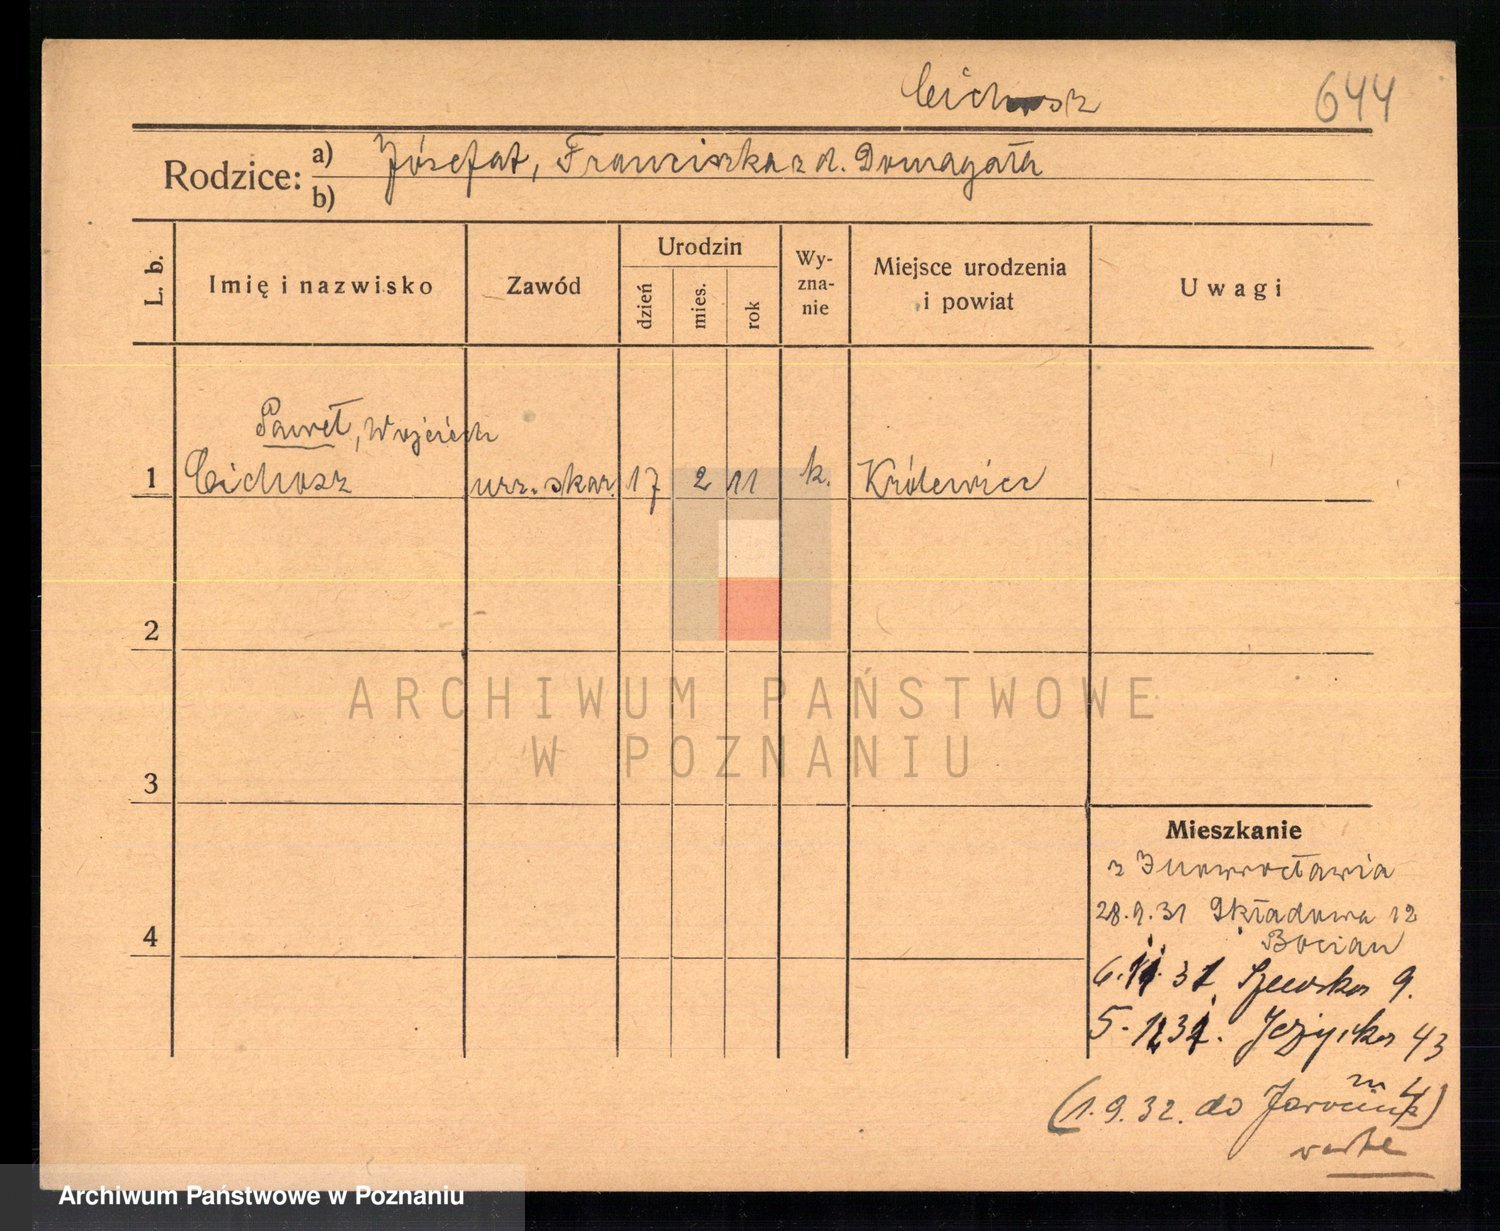 Cichosz 644
Rodzice: a) Józefat, Franciszka z d. Domagała
b)
L. b. Imię i nazwisko Zawód Urodzin dzień mies. rok Wy-zna-nie Miejsce urodzenia i powiat Uwagi
Paweł, Wojciech
1 Cichosz urz. skar. 17 2 11 k. Królewiec
2
3
4
Mieszkanie
z Inowrocławia
28.9.31 Składowa 12
Bocian
6. 31 Szewska 9.
5. 12 31. Jeżycka 43
m 4
(1.9.32. do Jarocina)
verte
ARCHIWUM PAŃSTWOWE
W POZNANIU
Archiwum Państwowe w Poznaniu